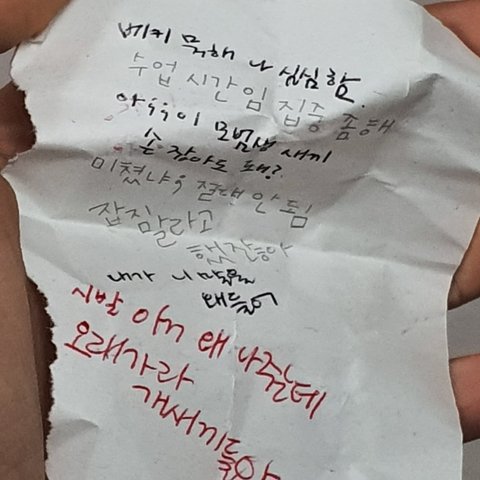 베키 뭑해 나 심심함.
수업 시간임 집중 좀해
아ㅇㅇ이 모범생 새끼
손 잡아도 돼?
미쳤냐ㅇ 절대 안 됨
잡지말라고
했잖아
내가 니 말을
왜들어
시발 이거 왜 나주는데
오래가라
개새끼들아